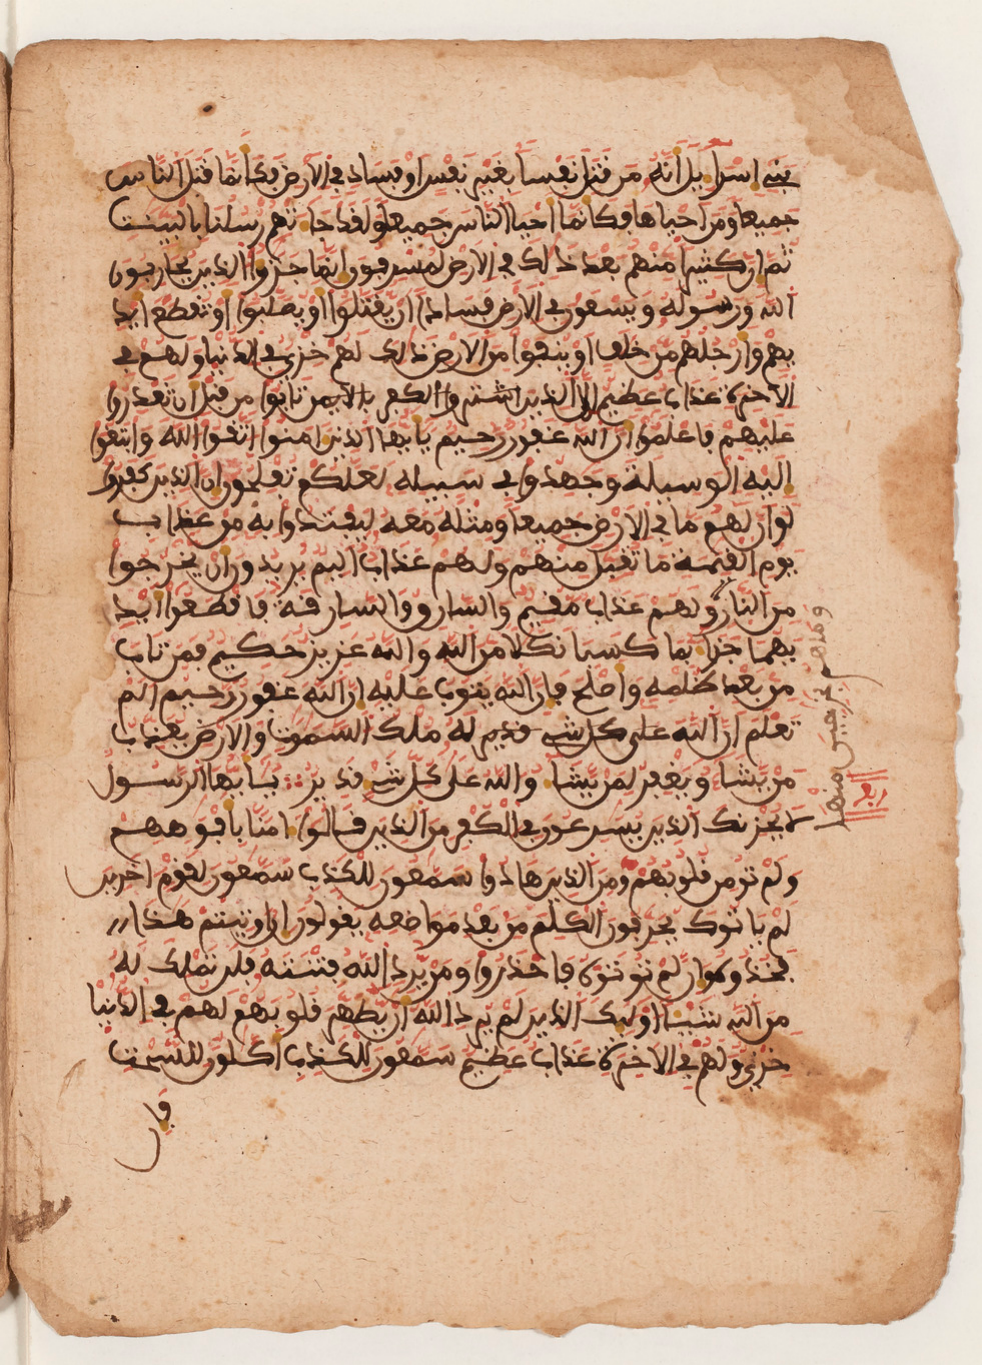 بني اسراءيل أنه من قتل نفسا بغير نفس او فساد في الارض فكأنما قتل الناس
جميعا ومن احياها فكأنما احيا الناس جميعا ولقد جاءتهم رسلنا بالبينت
ثم ان كثيرا منهم بعد ذلك في الارض لمسرفون انما جزؤا الذين يحاربون
الله ورسوله ويسعون في الارض فسادا ان يقتلوا او يصلبوا او تقطع ايد
يهم وارجلهم من خلف او ينفوا من الارض ذلك لهم خزي في الدنيا ولهم في
الاخرة عذاب عظيم الا الذين تابوا من قبل ان تقدروا
عليهم فاعلموا ان الله غفور رحيم يايها الذين امنوا اتقوا الله وابتغوا
اليه الوسيلة وجهدوا في سبيله لعلكم تفلحون ان الذين كفروا
لو ان لهم ما في الارض جميعا ومثله معه ليفتدوا به من عذاب
يوم القيمة ما تقبل منهم ولهم عذاب اليم يريدون ان يخرجوا
من النار ولهم عذاب مقيم والسارق والسارقة فاقطعوا ايد
يهما جزاء بما كسبا نكلا من الله والله عزيز حكيم فمن تاب
من بعد ظلمه واصلح فان الله يتوب عليه ان الله غفور رحيم الم
تعلم ان الله على كل شيء قدير له ملك السموت والارض يعذب
من يشاء ويغفر لمن يشاء والله على كل شيء قدير يايها الرسول
لا يحزنك الذين يسرعون في الكفر من الذين قالوا امنا بافوههم
ولم تومن قلوبهم ومن الذين هادوا سمعون للكذب سمعون لقوم اخرين
لم ياتوك يحرفون الكلم من بعد مواضعه يقولون ان اوتيتم هذا
فخذوه وان لم توتوه فاحذروا ومن يرد الله فتنته فلن تملك له
من الله شيئا اوليك الذين لم يرد الله ان يطهر قلوبهم لهم في الدنيا
خزي ولهم في الاخرة عذاب عظيم سمعون للكذب اكلون للسحت
فان
وما هم بخرجين منها
ربع